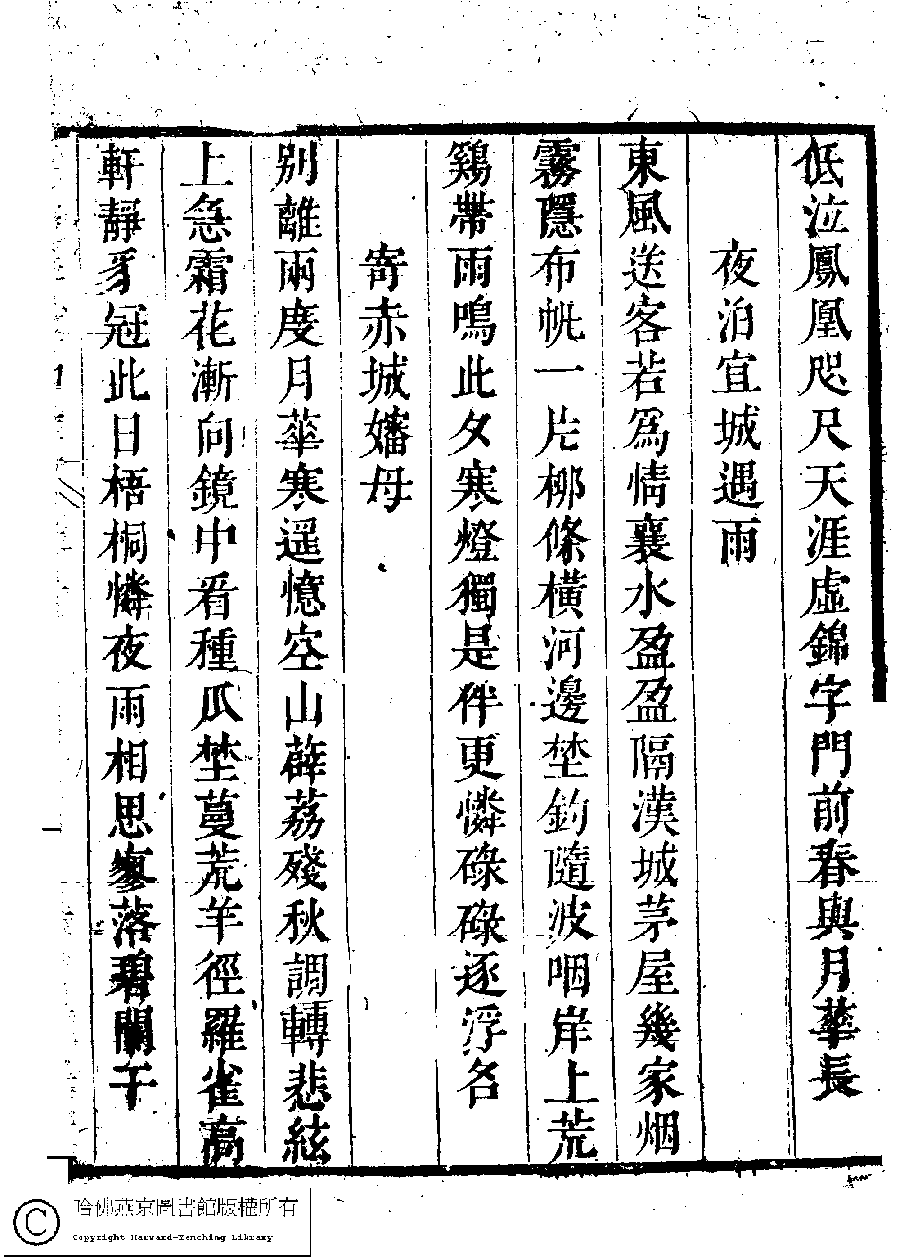 低泣鳳凰咫尺天涯虛錦字門前春與月華長
夜泊宜城遇雨
東風送客若爲情襄水盈盈隔漢城茅屋幾家烟
霧隱布帆一片柳條橫河邊埜釣隨波咽岸上荒
鷄帶雨鳴此夕寒燈獨是伴更憐碌碌逐浮名
寄赤城嬸母
別離兩度月華寒遥憶空山薜荔殘秋調轉悲絃
上急霜花漸向鏡中看種瓜埜蔓荒羊徑羅雀高
軒靜豸冠此日梧桐憐夜雨相思寥落碧闌干
哈佛燕京圖書館版權所有
Copyright Harvard-Yenching Library